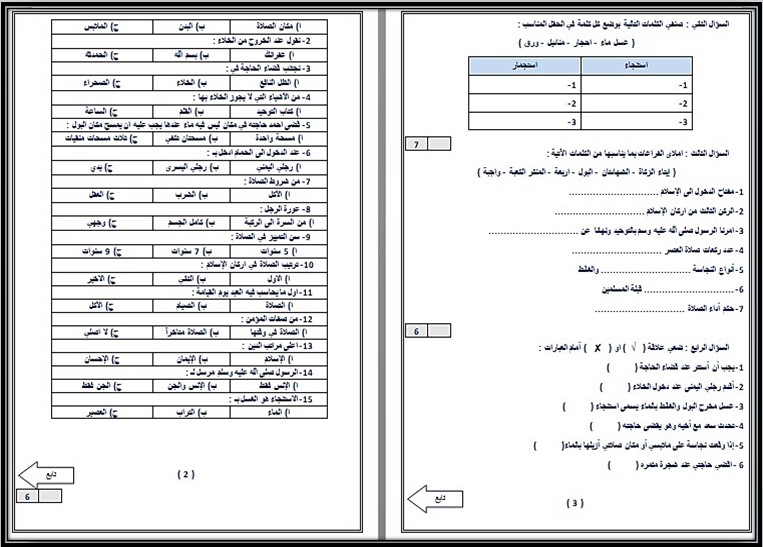 أ) مكان الصلاة ب) البدن ج) الملابس
2- نقول عند الخروج من الخلاء :
أ) غفرانك ب) بسم الله ج) الحمدلله
3- نجتنب قضاء الحاجة في :
أ) الظل النافع ب) الخلاء ج) الصحراء
4- من الأشياء التي لا يجوز الخلاء بها :
أ) كتاب التوحيد ب) القلم ج) الساعة
5- قضى احمد حاجته في مكان ليس فيه ماء عندها يجب عليه ان يمسح مكان البول :
أ) مسحة واحدة ب) مسحتان تكفي ج) ثلاث مسحات منقيات
6- عند الدخول الى الحمام ادخل بـ :
أ) رجلي اليمني ب) رجلي اليسرى ج) يدي
7- من شروط الصلاة :
أ) الأكل ب) الشرب ج) العقل
8- عورة الرجل :
أ) من السرة الي الركبة ب) كامل الجسم ج) وجهي
9- سن التمييز في الصلاة :
أ) 5 سنوات ب) 7 سنوات ج) 9 سنوات
10- ترتيب الصلاة في اركان الإسلام :
أ) الأول ب) الثاني ج) الاخير
11- أول ما يحاسب فيه العبد يوم القيامة :
أ) الصلاة ب) الصيام ج) الأكل
12- من صفات المؤمن :
أ) الصلاة في وقتها ب) الصلاة متأخراً ج) لا اصلي
13- اعلى مراتب الدين :
أ) الإسلام ب) الإيمان ج) الإحسان
14- الرسول صلى الله عليه وسلم مرسل لـ :
أ) الإنس فقط ب) الإنس والجن ج) الجن فقط
15- الاستنجاء هو الغسل بـ :
أ) الماء ب) التراب ج) العصير
( 2 )
تابع
6
السؤال الثاني : صنفي الكلمات التالية بوضع كل كلمة في الحقل المناسب :
( غسل ماء - احجار - مناديل - ورق )
استنجاء استجمار
1- 1-
2- 2-
3- 3-
7
السؤال الثالث : املائي الفراغات بما يناسبها من الكلمات الآتية :
( إيتاء الزكاة - الشهادتان - البول - اربعة - المنكر الكعبة - واجبة )
1- مفتاح الدخول الى الإسلام ........................
2- الركن الثالث من اركان الإسلام ........................
3- امرنا الرسول صلى الله عليه وسلم بالتوحيد ونهانا عن ........................
4- عدد ركعات صلاة العصر ........................
5- أنواع النجاسة ........................ والغائط
6- ........................ قبلة المسلمين
7- حكم أداء الصلاة ........................
6
السؤال الرابع : ضعي علاقة ( √ ) او ( ✗ ) أمام العبارات :
1- يجب أن أستتر عند قضاء الحاجة ( )
2- أقدم رجلي اليمنى عند دخول الخلاء ( )
3- غسل مخرج البول والغائط بالماء يسمى استنجاء ( )
4- تحدث سعد مع أخيه وهو يقضي حاجته ( )
5- إذا وقعت نجاسة على ملابسي أو مكان صلاتي أزيلها بالماء( )
6 - اقضي حاجتي عند شجرة مثمره ( )
تابع
( 3 )